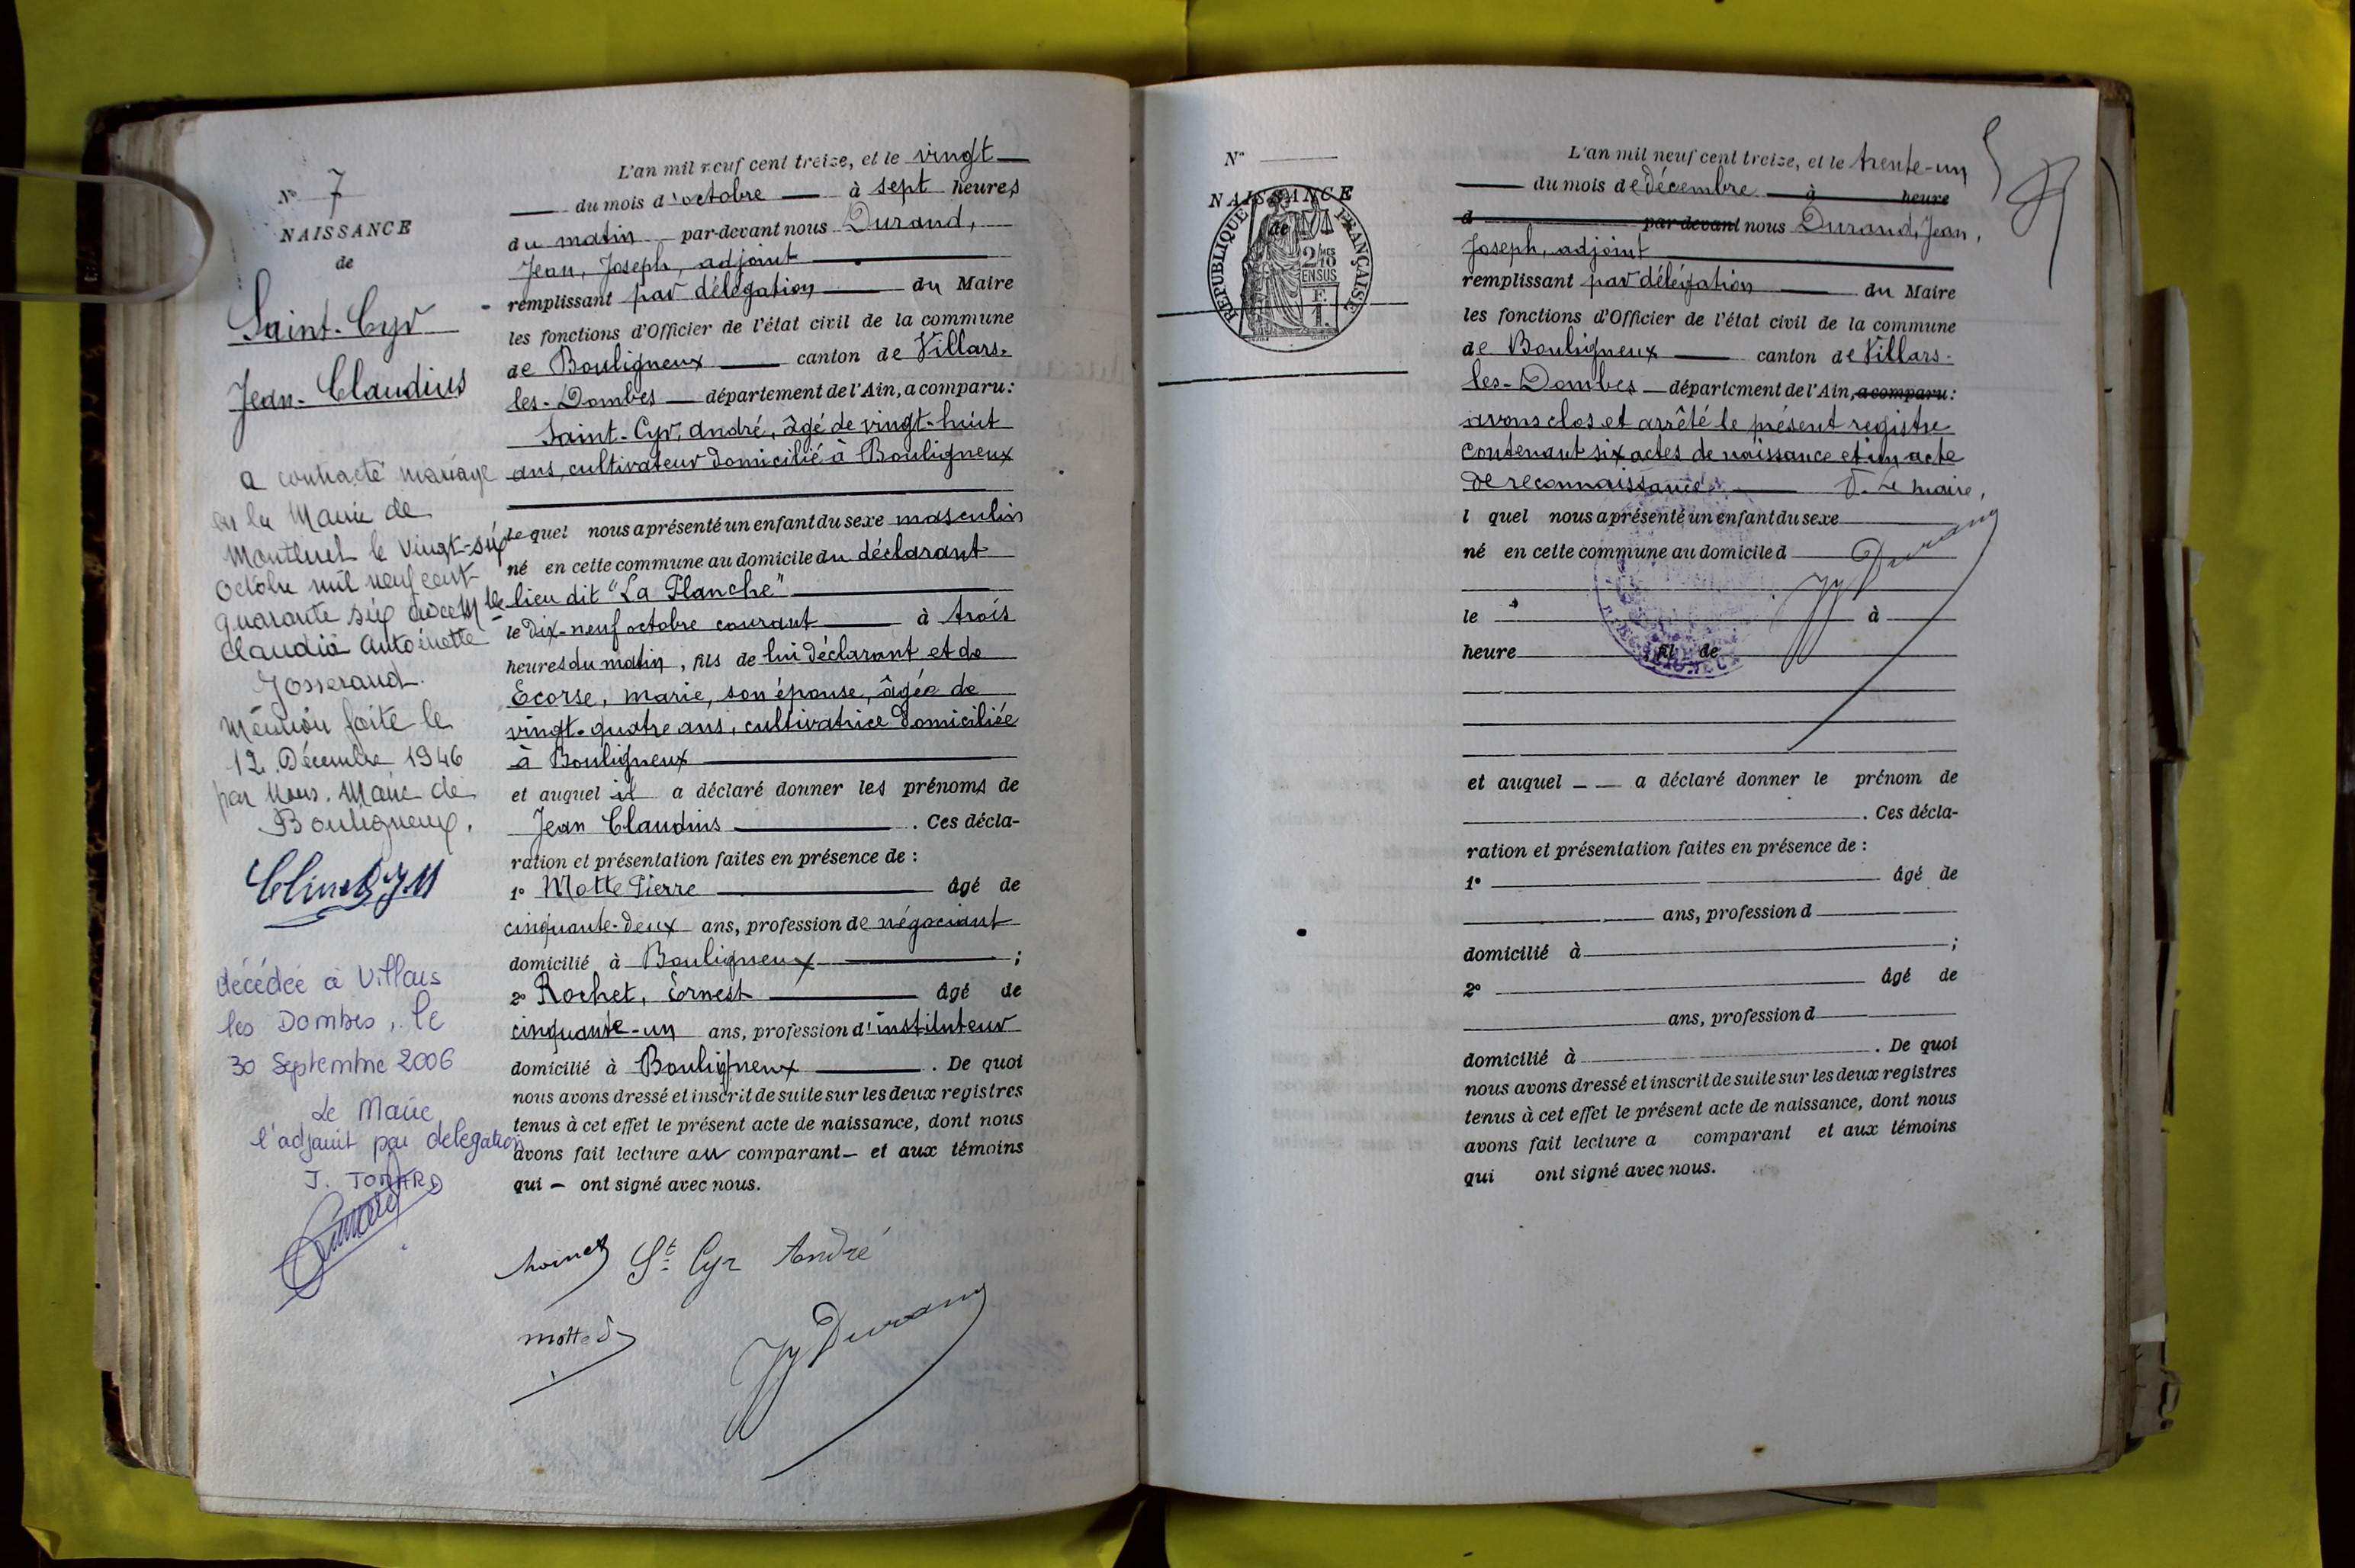 N° 7
NAISSANCE
de
Saint-Cyr
Jean-Claudius
a contracté mariage
en la Mairie de
Montluel le vingt-six
octobre mil neuf cent
quarante six avec Mlle
Claudia Antoinette
Josserand.
Mention faite le
12. Décembre 1946
par Nous. Maire de
Bouligneux.
décédée à Villars
les Dombes, le
30 Septembre 2006
Le Maire
l'adjoint par delegation
J. TONARD
L'an mil neuf cent treize, et le vingt
du mois d'octobre à sept heures
du matin par-devant nous Durand,
Jean, Joseph, adjoint
remplissant par délégation du Maire
les fonctions d'Officier de l'état civil de la commune
de Bouligneux canton de Villars-
les-Dombes département de l'Ain, a comparu :
Saint-Cyr, André, âgé de vingt-huit
ans, cultivateur domicilié à Bouligneux
Lequel nous a présenté un enfant du sexe masculin
né en cette commune au domicile du déclarant
lieu dit "La Planche"
le dix-neuf octobre courant à trois
heures du matin, fils de lui déclarant et de
Ecorse, marie, son épouse, âgée de
vingt-quatre ans, cultivatrice domiciliée
à Bouligneux
et auquel il a déclaré donner les prénoms de
Jean Claudius . Ces décla-
ration et présentation faites en présence de :
1° Motte Pierre âgé de
cinquante-deux ans, profession de négociant
domicilié à Bouligneux ;
2° Rochet, Ernest âgé de
cinquante-un ans, profession d'instituteur
domicilié à Bouligneux . De quoi
nous avons dressé et inscrit de suite sur les deux registres
tenus à cet effet le présent acte de naissance, dont nous
avons fait lecture au comparant – et aux témoins
qui – ont signé avec nous.
St Cyr André
JJ Durand
N°
NAISSANCE
de
RÉPUBLIQUE FRANÇAISE
2/10
EN SUS
L'an mil neuf cent treize, et le trente-un
du mois de décembre à heure
d par-devant nous Durand, Jean,
Joseph, adjoint
remplissant par délégation du Maire
les fonctions d'Officier de l'état civil de la commune
de Bouligneux canton de Villars-
les-Dombes département de l'Ain, a comparu :
avons clos et arrêté le présent registre
contenant six actes de naissance et un acte
de reconnaissance. Le maire,
l quel nous a présenté un enfant du sexe
né en cette commune au domicile d
JJ Durand
le à
heure fil de
et auquel a déclaré donner le prénom de
. Ces décla-
ration et présentation faites en présence de :
1° âgé de
ans, profession d
domicilié à ;
2° âgé de
ans, profession d
domicilié à . De quoi
nous avons dressé et inscrit de suite sur les deux registres
tenus à cet effet le présent acte de naissance, dont nous
avons fait lecture a comparant et aux témoins
qui ont signé avec nous.